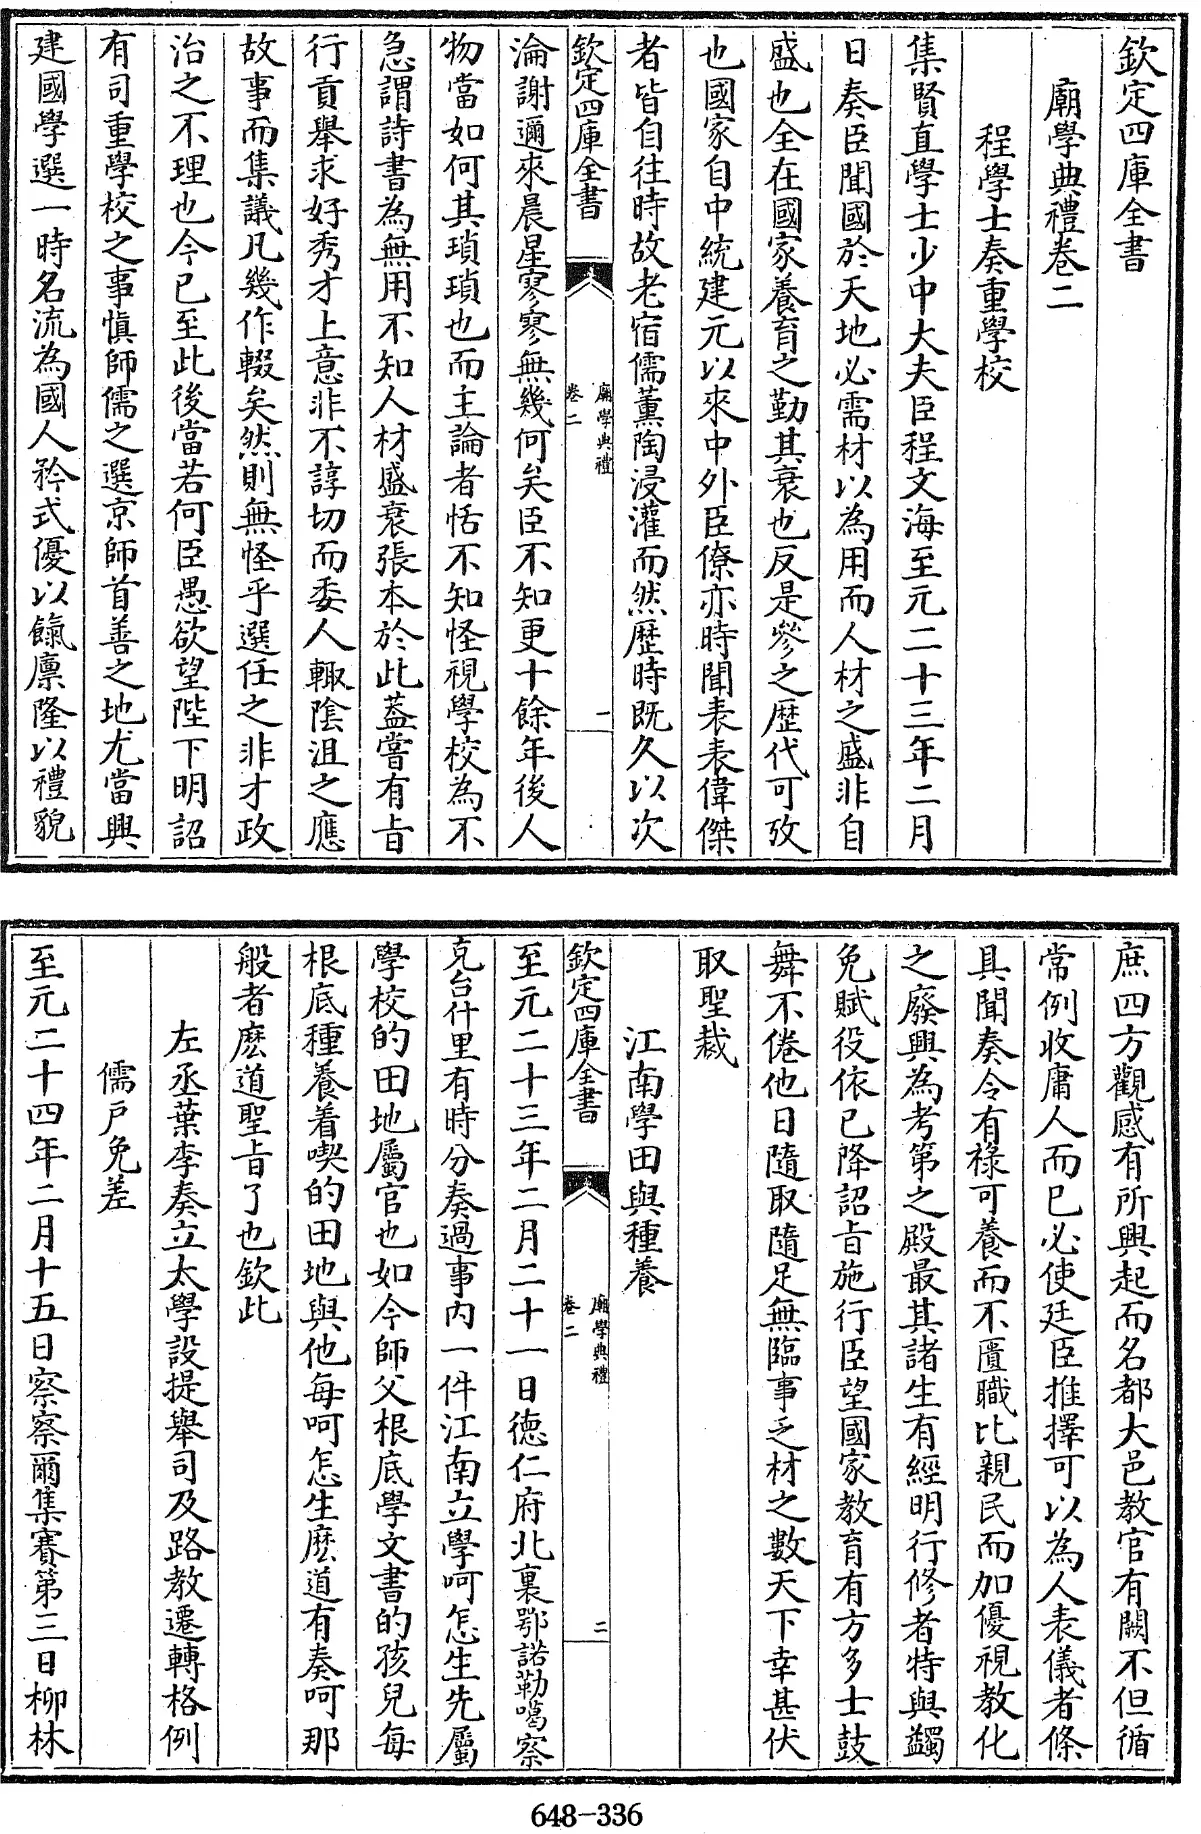 欽定四庫全書
廟學典禮卷二
程學士奏重學校
集賢直學士少中大夫臣程文海至元二十三年二月
日奏臣聞國於天地必需材以為用而人材之盛非自
盛也全在國家養育之勤其衰也反是參之歴代可攷
也國家自中統建元以來中外臣僚亦時聞表表偉傑
者皆自往時故老宿儒薰陶浸灌而然歴時既久以次
欽定四庫全書
廟學典禮
卷二
一
淪謝邇來晨星寥寥無幾何矣臣不知更十餘年後人
物當如何其瑣瑣也而主論者恬不知怪視學校為不
急謂詩書為無用不知人材盛衰張本於此蓋嘗有㫖
行貢舉求好秀才上意非不諄切而委人輙陰沮之應
故事而集議凡幾作輟矣然則無怪乎選任之非才政
治之不理也今已至此後當若何臣愚欲望陛下明詔
有司重學校之事慎師儒之選京師首善之地尤當興
建國學選一時名流為國人矜式優以餼廪隆以禮貌
庶四方觀感有所興起而名都大邑教官有闕不但循
常例收庸人而已必使廷臣推擇可以為人表儀者條
具聞奏令有禄可養而不匱職比親民而加優視教化
之廢興為考第之殿最其諸生有經明行修者特與蠲
免賦役依已降詔㫖施行臣望國家教育有方多士鼓
舞不倦他日隨取隨足無臨事乏材之歎天下幸甚伏
取聖裁
江南學田與種養
欽定四庫全書
廟學典禮
卷二
二
至元二十三年二月二十一日德仁府北裏鄂諾勒噶察
克台什里有時分奏過事内一件江南立學呵怎生先屬
學校的田地屬官也如今師父根底學文書的孩兒每
根底種養着喫的田地與他每呵怎生麽道有奏呵那
般者麽道聖㫖了也欽此
左丞葉李奏立太學設提舉司及路教遷轉格例
儒戸免差
至元二十四年二月十五日察察爾集賽第三日柳林
648-336